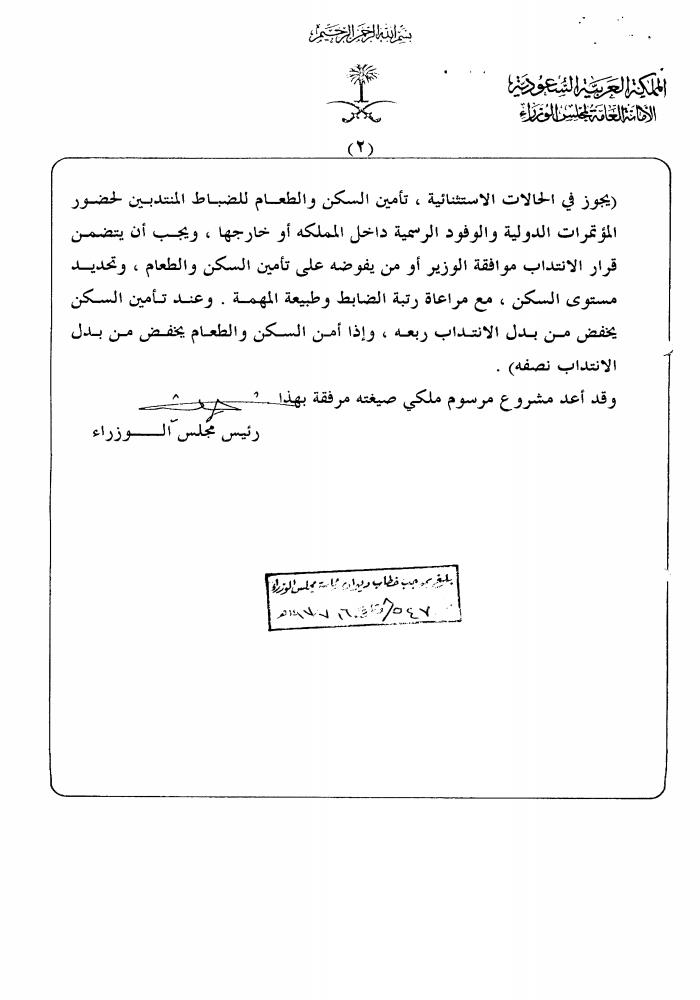 بسم الله الرحمن الرحيم
المملكة العربية السعودية
الأمانة العامة لمجلس الوزراء
(٢)
(يجوز في الحالات الاستثنائية ، تأمين السكن والطعام للضباط المنتدبين لحضور
المؤتمرات الدولية والوفود الرسمية داخل المملكه أو خارجها ، ويجب أن يتضمن
قرار الانتداب موافقة الوزير أو من يفوضه على تأمين السكن والطعام ، وتحديد
مستوى السكن ، مع مراعاة رتبة الضابط وطبيعة المهمة . وعند تأمين السكن
يخفض من بدل الانتداب ربعه ، وإذا أمن السكن والطعام يخفض من بدل
الانتداب نصفه) .
وقد أعد مشروع مرسوم ملكي صيغته مرفقة بهذا .
رئيس مجلس الوزراء
خطاب ديوان مجلس الوزراء